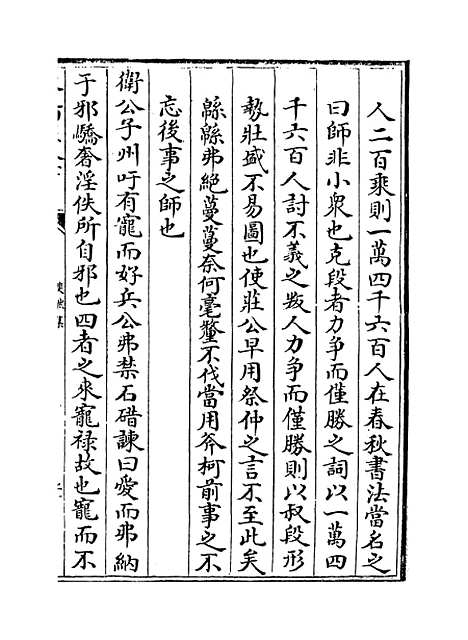 人二百乘則一萬四千六百人在春秋書法當名之
曰師非小衆也克段者力争而僅勝之詞以一萬四
千六百人討不義之叛人力争而僅勝則以叔段形
勢壯盛不易圖也使莊公早用祭仲之言不至此矣
緜緜弗絶蔓蔓奈何毫釐不伐當用斧柯前事之不
忘後事之師也
衛公子州吁有寵而好兵公弗禁石碏諫曰愛而弗納
于邪驕奢淫佚所自邪也四者之來寵禄故也寵而不